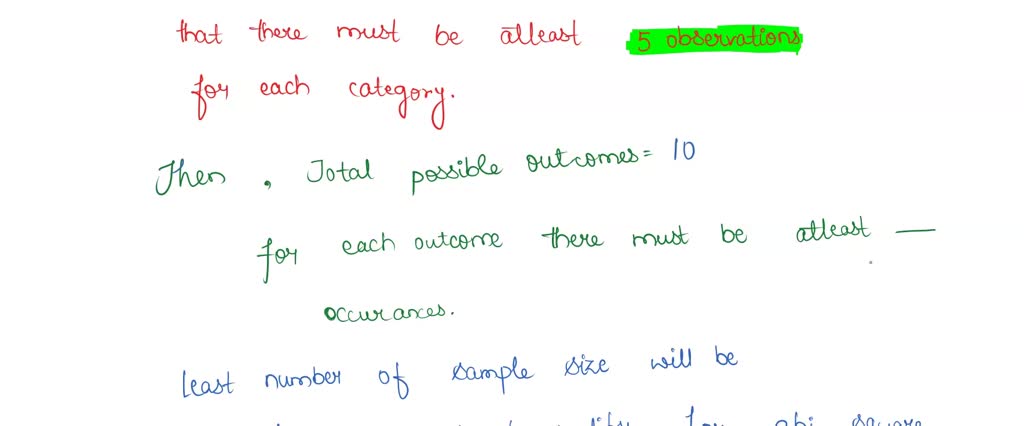 that there must be atleast 5 observations
for each category.
Then , Total possible outcomes= 10
for each outcome there must be atleast —
occurances.
least number of sample size will be
for chi square